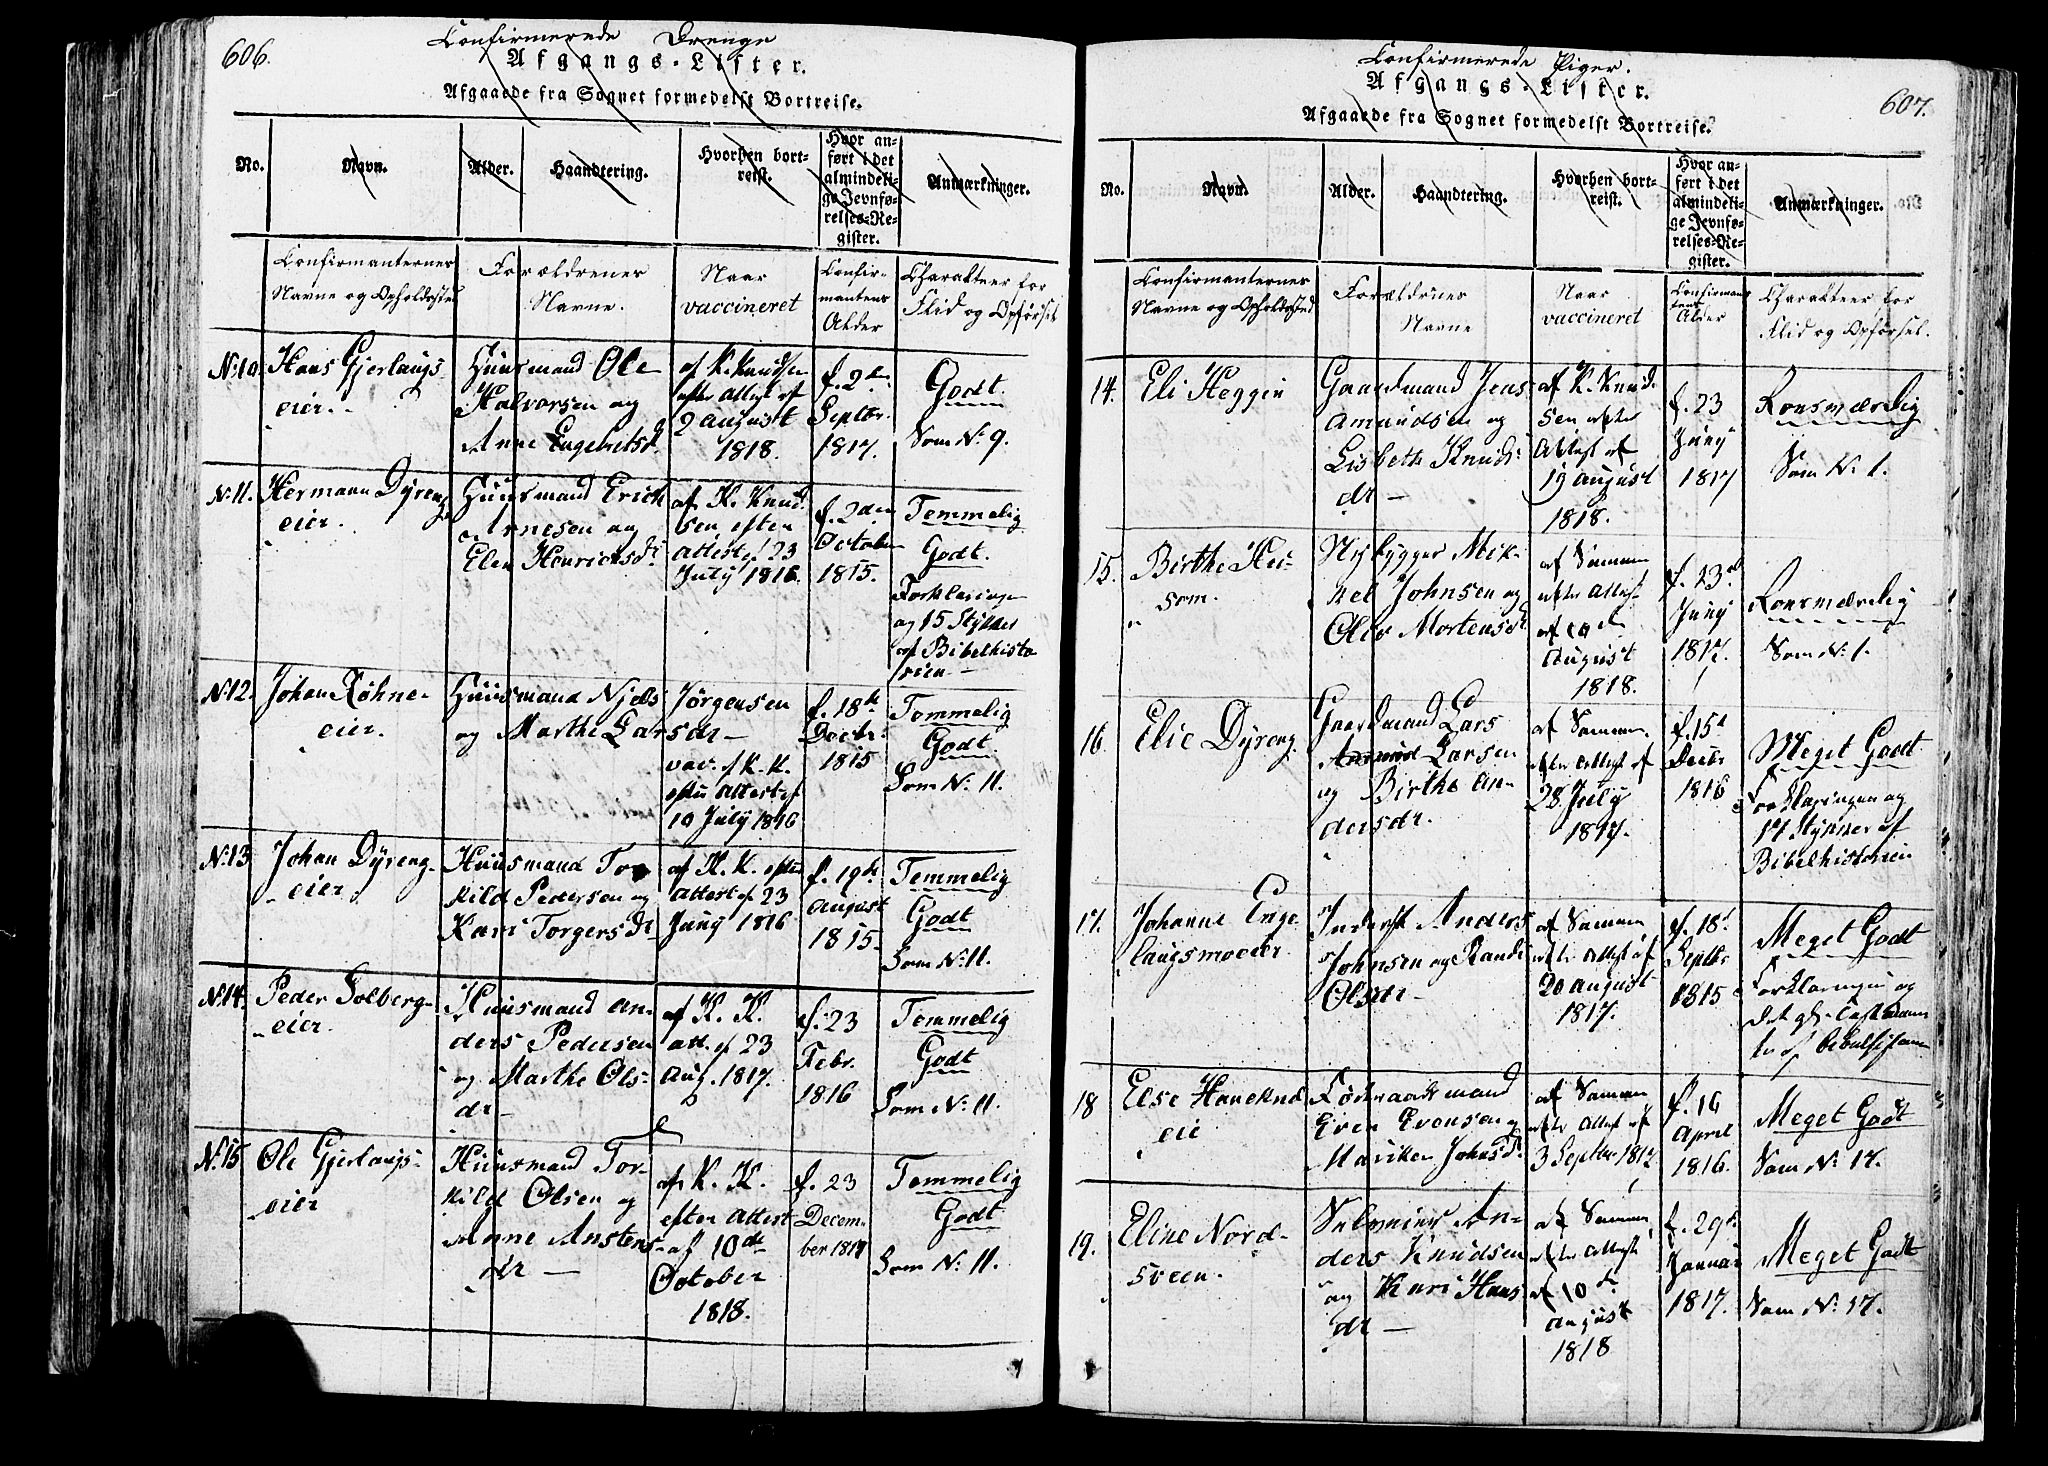 606.
Confirmerede Drenge
Afgangs-Lister.
Afgaaede fra Sognet formedelst Bortreise.
No.
Navn.
Alder.
Haandtering.
Hvorhen bort-
reist.
Hvor an-
ført i det
almindeli-
ge Jevnfø-
relses-Re-
gister.
Anmærkninger.
Confirmanternes
Navne og Opholdssted
Forældrenes
Navne.
Naar
vaccineret
Confir-
mantens
Alder
Charakteer for
Flid og Opførsel
No. 10.
Hans Gjerlaugs
eier.
Huusmand Ole
Halvorsen og
Anne Engebretsd.
af K. Knudsen
efter Attest af
2 August
1818.
f. 2den
Septbr.
1817.
Godt.
Som No. 9.
No. 11.
Hermann Dyreng
eier.
Huusmand Erich
Arnesen og
Elen Henrichsdr.
af K. Knud-
sen efter
Attest af 23
July 1816.
f. 2den
October
1815.
Temmelig
Godt.
Forklaringen
og 15 Stykker
af Bibelhisto-
rien —
No. 12.
Johan Røhne-
eier.
Huusmand Njels Jørgensen
og Marthe Larsdr —
vac. af K. K.
efter Attest af
10 July 1816
f. 18de
Decbr.
1815
Temmelig
Godt.
Som No. 11.
No. 13
Johan Dyreng-
eier.
Huusmand Tor
kild Pedersen og
Kari Torgersdr
af K. K. efter
Attest af 23
Juny 1816
f. 19de
August
1815.
Temmelig
Godt
Som No. 11.
No. 14.
Peder Solberg-
eier.
Huusmand An-
ders Pedersen
og Marthe Ols-
dr —
af K. K.
att. af 23
Aug. 1817.
f. 23
Febr.
1816
Temmelig
Godt
Som No. 11.
No. 15
Ole Gjerlaugs-
eier
Huusmand Tor-
kild Olsen og
Anne Anstens-
dr —
af K. K.
efter Attest
af 10de
October
1818.
f. 23
Decem-
ber 1817
Temmelig
Godt
Som No. 11.
607.
Confirmerede Piger.
Afgangs-Lister.
Afgaaede fra Sognet formedelst Bortreise.
No.
Navn.
Alder.
Haandtering.
Hvorhen bort-
reist.
Hvor an-
ført i det
almindeli-
ge Jevnfø-
relses-Re-
gister.
Anmærkninger.
Confirmanternes
Navne og Opholdssted
Forældrenes
Navne
Naar
vaccineret
Confirman-
tens
Alder
Charakteer for
Flid og Opførsel.
14.
Eli Heggen
Gaardmand Jens
Amundsen og
Lisbeth Knuds
dr —
af K. Knud-
sen efter
Attest af
19 August
1818.
f. 23
Juny
1817
Roesværdig
Som No. 1.
15.
Birthe
som.
Nybygger Mik-
kel Johnsen og
Olea Mortensdr
af Samme
efter Attest
af 10de
August
1818.
f. 23de
Juny
1817.
Roesværdig
Som No. 1.
16.
Elie Dyreng.
Gaardmand Lars
Larsen
og Birthe An-
dersdr.
af Samme
efter Attest af
28 July
1817.
f. 15d
Decbr
1816
Meget Godt
Forklaringen og
17 Stykker af
Bibelhistorien
17.
Johanne Enge
laugsmoeier
Inderst Anders
Johnsen og Randi
Olsdr —
af Samme
efter Attest af
20 August
1817.
f. 18d
Septbr
1815
Meget Godt
Forklaringen og
18
Else Haneknæ
eie
Føderaadsmand
Even Evensen og
Mariken Johnsdr
af Samme
efter Attest af
3 Septbr 1817
f. 16
April
1816.
Meget Godt
Som No. 17.
19.
Eline Nord-
sveen.
Selveier An-
ders Knudsen
og Kari Hans
dr —
af Samme
efter Attest
af 10de
August
1818
f. 29de
Januar
1817.
Meget Godt
Som No. 17.